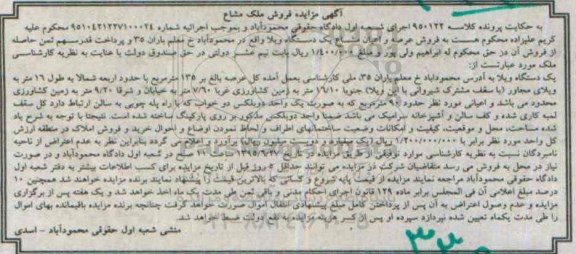 آگهی مزایده فروش ملک مشاع
به حکایت پرونده کلاسه ۹۵۰۱۲۲ اجرای شعبه اول دادگاه حقوقی محمودآباد و بموجب اجرائیه شماره ۹۵۱۰۴۲۱۲۳۷۱۰۰۰۲۴ محکوم علیه
کریم علیزاده محکوم هست به فروش عرصه و اعیان یک دستگاه ویلا واقع در محمودآباد خ معلم یاران ۳۵ و پرداخت قدرسهم ثمن حاصله
از فروش آن در حق محکوم له ابراهیم ولی پور و مبلغ ۱/۴۰۰/۰۰۰ ریال بابت نیم عشر دولتی در حق صندوق دولت با عنایت به نظریه کارشناسی
ملک مورد عبارتست از:
یک دستگاه ویلا به آدرس محمودآباد خ معلم یاران ۳۵، طی کارشناسی بعمل آمده کل عرصه بالغ بر ۱۳۵ مترمربع با حدود اربعه شمالا به طول ۱۶ متر به
ویلای مجاور (با سقف مشترک شیروانی با این ویلا) جنوبا ۱۶/۱۰ متر به زمین کشاورزی غربا ۷/۶۰ متر به خیابان و شرقا ۹/۲۰ متر به زمین کشاورزی
محدود می باشد و اعیانی مورد نظر حدود ۹۰ مترمربع که به صورت یک واحد دوبلکس دو خواب که با راه پله چوبی به سالن ارتباط دارد کل سقف
لمبه کاری شده و کف سالن و آشپزخانه سرامیک می باشد ضمنا واحد دوبلکس مذکور بر روی پارکینگ ساخته شده است. نتیجتا با توجه به شرح یاد
شده مساحت، محل و موقعیت، کیفیت و امکانات وضعیت ساختمانهای اطراف و لحاظ نمودن اوضاع و احوال خرید و فروش املاک در منطقه ارزش
کل واحد مورد نظر برابر با ریال یک میلیارد و دویست میلیون برآورد و اعلام می گردد بنابراین نظر به عدم اعتراض از ناحیه
نامبردگان نسبت به نظریه کارشناسی موارد توقیفی از طریق مزایده در تاریخ در شعبه اول دادگاه محمودآباد و در صورت
نیاز در محل به فروش می رسد متقاضیان شرکت در مزایده می توانند حداقل ۵ روز قبل از تاریخ مزایده برای کسب اطلاعات بیشتر به دفتر شعبه اول
دادگاه حقوقی محمودآباد مراجعه نمایند مزایده از قیمت پایه شروع و کسانی که بالاترین قیمت را پیشنهاد نمایند برنده مزایده خواهند شد همچنین ۱۰
درصد مبلغ اعلامی آن فی المجلس برابر ماده ۱۲۹ قانون اجرای احکام مدنی و باقی ثمن طی مدت یک ماه اخذ خواهد شد و یک هفته پس از برگزاری
مزایده و عدم وصول اعتراض به آن پس از پرداختن کامل مبلغ پیشنهادی انتقال اموال صورت خواهد گرفت چنانچه برنده مزایده باقیمانده بهای اموال
را طی مدت یکماه تعیین شده نپردازد سپرده او پس از کسر هزینه مزایده به نفع دولت ضبط خواهد شد.
منشی شعبه اول حقوقی محمودآباد - اسدی